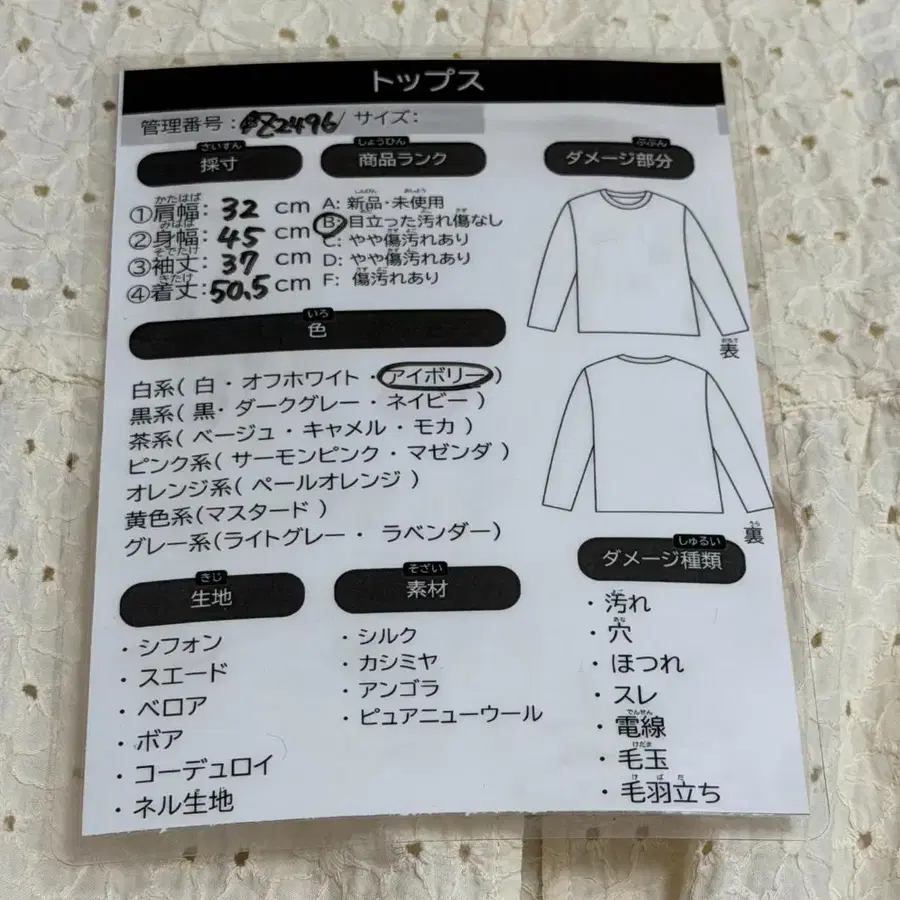 トップス
管理番号: 82496/ サイズ:
さいすん
採寸
しょうひん
商品ランク
ぶぶん
ダメージ部分
かたはば
①肩幅: 32 cm
みはば
②身幅: 45 cm
そでたけ
③袖丈: 37 cm
きたけ
④着丈: 50.5 cm
A: 新品・未使用
B: 目立った汚れ傷なし
C: やや傷汚れあり
D: やや傷汚れあり
F: 傷汚れあり
おもて
表
いろ
色
白系( 白・オフホワイト・アイボリー)
黒系( 黒・ダークグレー・ネイビー )
茶系( ベージュ・キャメル・モカ )
ピンク系( サーモンピンク・マゼンダ )
オレンジ系( ペールオレンジ )
黄色系(マスタード )
グレー系(ライトグレー・ ラベンダー)
うら
裏
きじ
生地
・シフォン
・スエード
・ベロア
・ボア
・コーデュロイ
・ネル生地
そざい
素材
・シルク
・カシミヤ
・アンゴラ
・ピュアニューウール
しゅるい
ダメージ種類
・汚れ
あな
・穴
・ほつれ
・スレ
でんせん
・電線
けだま
・毛玉
けばだ
・毛羽立ち